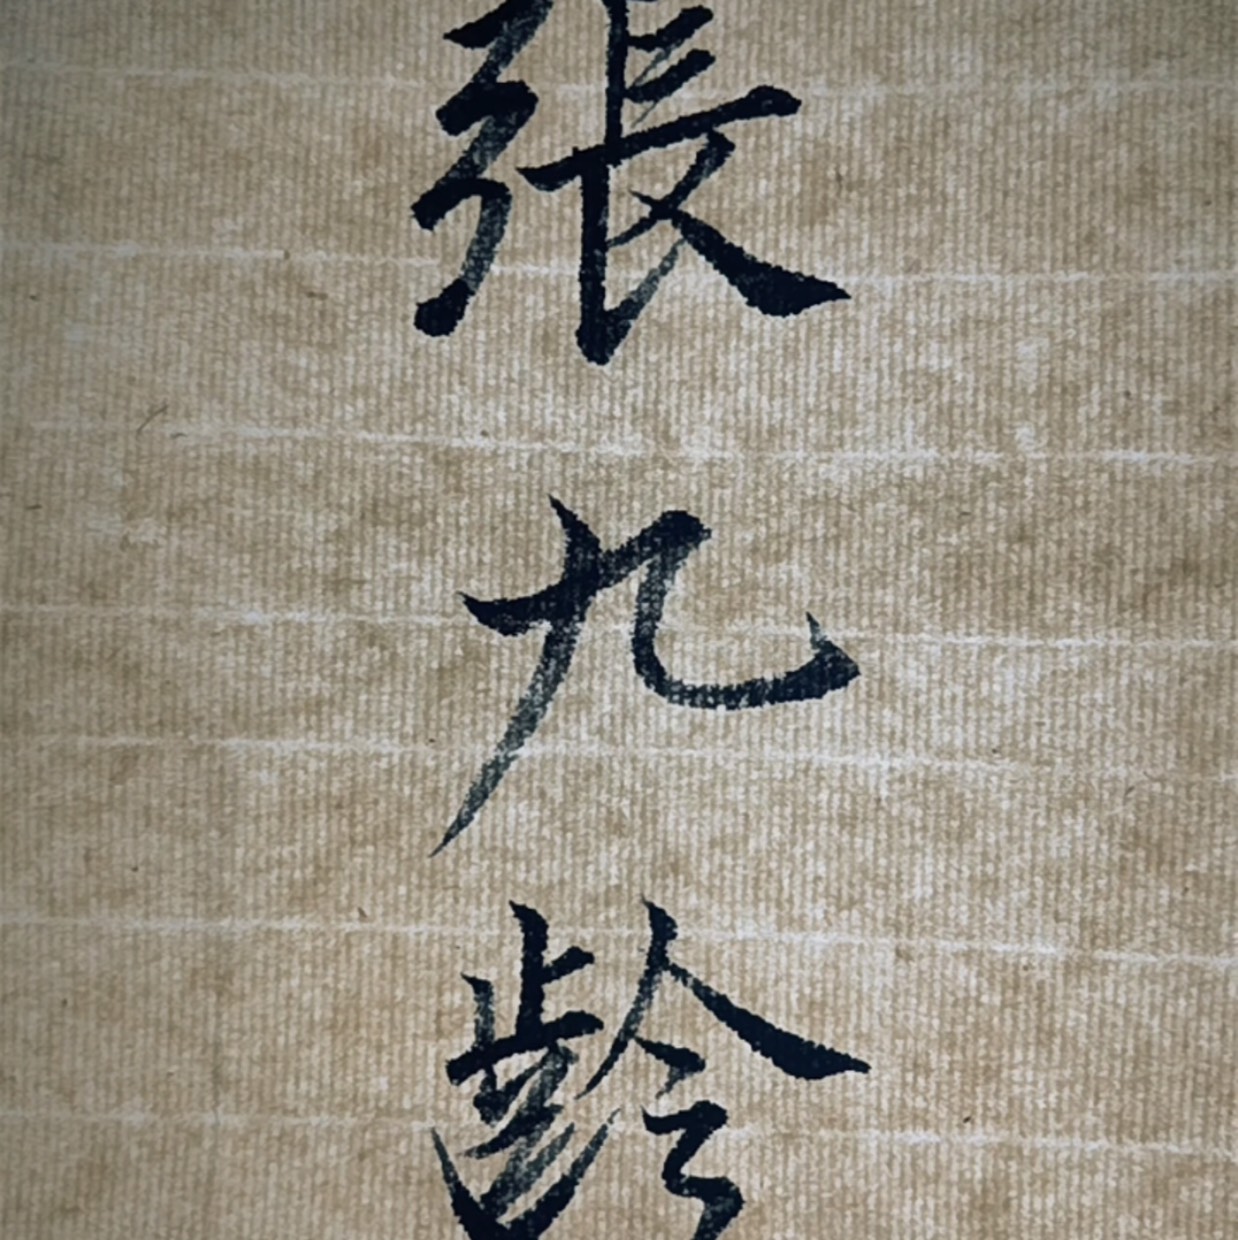 張九齡